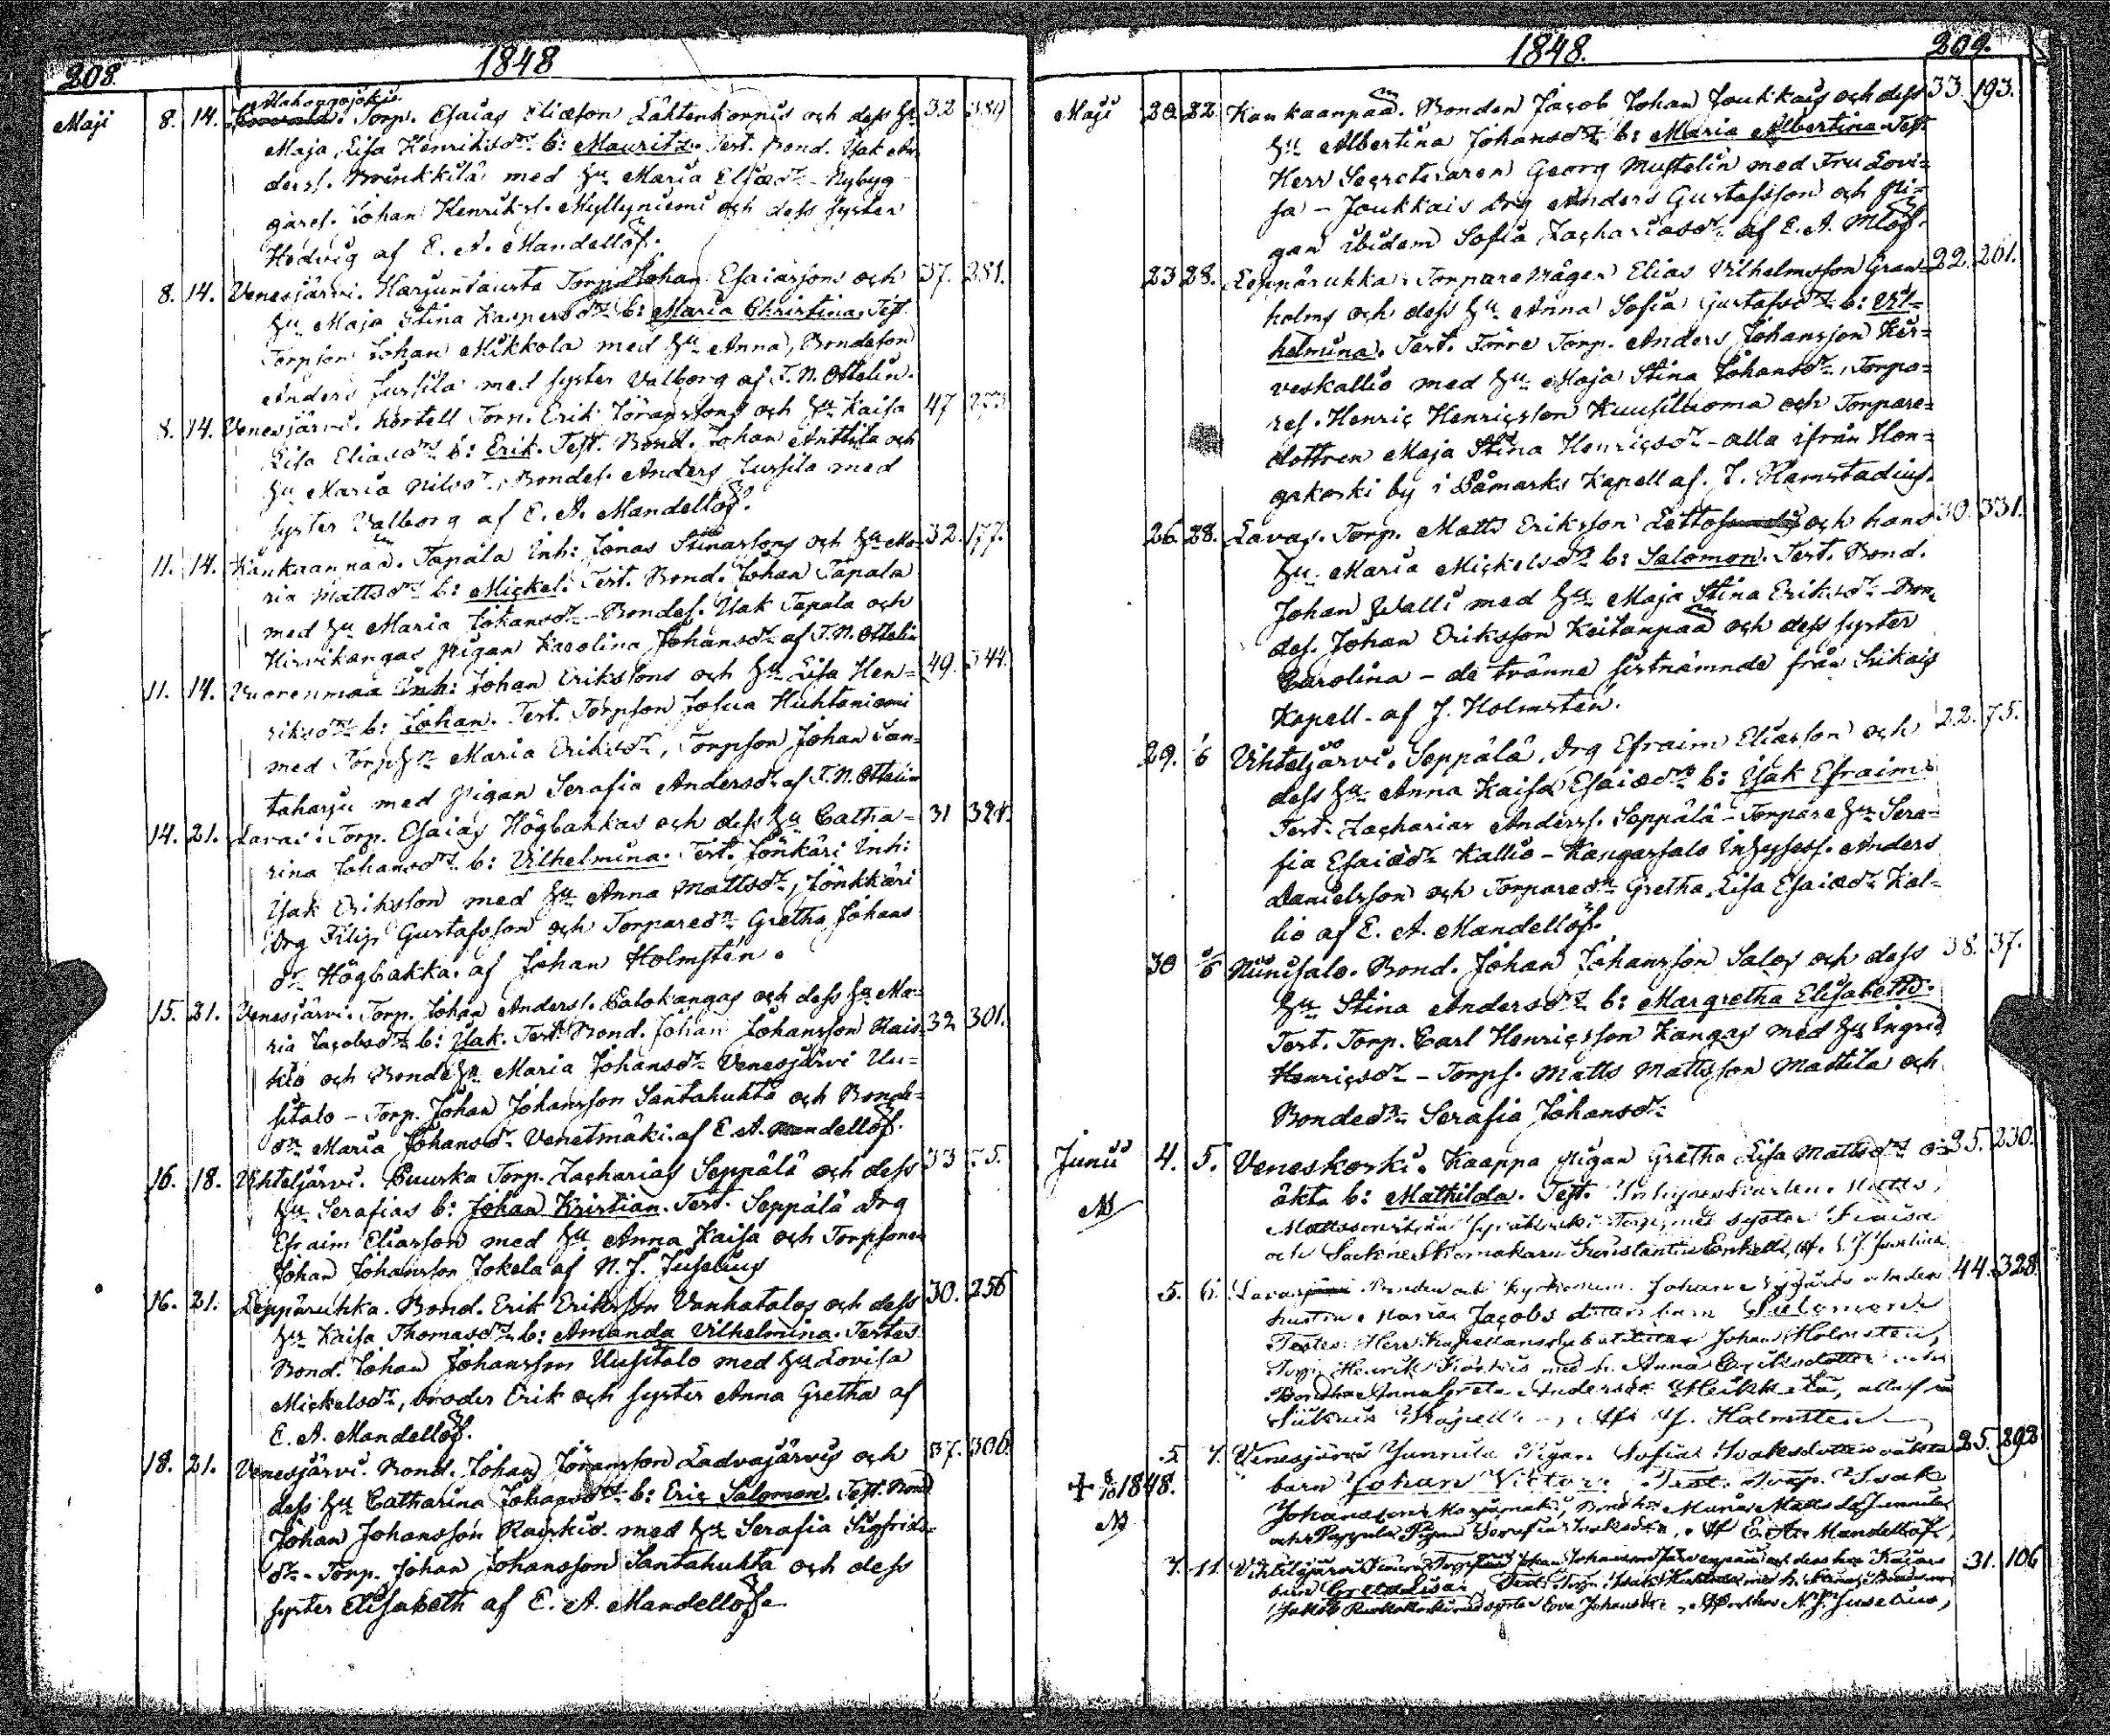 208.
1848
Maji 8. 14. Hahongojokis.
Torp. Esaias Eliæson Lähtenkornis och dess hu 32
Maja Lisa Henriksdr b: Mauritz. Test. Bond. Isak An-
derss. Brinkkilä med hu Maria Eliædr - Nybyg-
gares. Johan Henrikss. Myllyniemi och dess syster
Hedvig af E. A. Mandellöf.
8. 14. Venesjärvi. Harjuntausta Torp. Johan Esaiassons och 37. 281.
hu Maja Stina Kaspersdr b: Maria Christina. Test.
Torpson Johan Mikkola med hu Anna, Bondeson
Anders Jussila med syster Valborg af F. N. Ottelin.
8. 14. Venesjärvi. Torp. Erik Göranssons och hu Kaisa 47
Lisa Eliasdr b: Erik. Test. Bond. Johan Anttila och
hu Maria Nilsdr, Bondes. Anders Jussila med
syster Valborg af E. A. Mandellöf.
11. 14. Kankaanpää. Tapala Inh: Jonas Stinassons och hu Ma- 32. 177.
ria Mattsdr b: Mickel. Test. Bond. Johan Tapala
med hu Maria Johansdr - Bondes. Isak Tapala och
Hirvikangas Pigan Karolina Johansdr af F. N. Ottelin
11. 14. Vuorenmaa Inh: Johan Erikssons och hu Lisa Hen- 49. 344.
riksdr b: Johan. Test. Torpson Josua Huhtaniemi
med Torp.hu Maria Eriksdr, Torpson Johan San-
taharju med Pigan Serafia Andersdr af F. N. Ottelin
14. 21. Lavai: Torp. Esaias Högbakkas och dess hu Catha- 31 324.
rina Johansdr b: Vilhelmina. Test. Jönkäri Inh:
Isak Eriksson med hu Anna Mattsdr, Jönkkäri
Drg Filip Gustafsson och Torparedr Gretha Johans
dr Högbakka. af Johan Holmstén.
15. 21. Venesjärvi. Torp. Johan Anderss. Palokangas och dess hu Ma- 32 301.
ria Jacobsdr b: Isak. Test. Bond. Johan Johansson Rais-
kio och Bondehu Maria Johansdr Venesjärvi Uu-
sitalo - Torp. Johan Johansson Santahuhta och Bonde-
dr Maria Johansdr Venetmäki. af E. A. Mandellöf.
16. 18. Vihteljärvi. Puuska Torp. Zacharias Seppälä och dess 33 75.
hu Serafias b: Johan Kristian. Test. Seppälä Drg
Efraim Eliasson med hu Anna Kaisa och Torpsonen
Johan Johansson Jokela af N. J. Juselius
16. 21. Leppäruhka. Bond. Erik Eriksson Vanhatalos och dess 30. 256
hu Kaisa Thomasdr b: Amanda Vilhelmina. Testes
Bond. Johan Johansson Uusitalo med hu Lovisa
Mickelsdr, broder Erik och syster Anna Gretha af
E. A. Mandellöf.
18. 21. Venesjärvi. Bond. Johan Göransson Ladvajärvis och 37. 306
dess hu Catharina Johansdr b: Eric Salomon. Test. Bond
Johan Johansson Raiskio med hu Serafia Sigfrids-
dr. Torp. Johan Johansson Santahuhta och dess
syster Elisabeth af E. A. Mandellöf.
1848.
209.
Maji 20. 22. Kankaanpää. Bonden Jacob Johan Joukkais och dess 33. 193.
hu Albertina Johansdr b: Maria Albertina. Test.
Herr Secreteraren Georg Mustelin med Fru Lovi-
sa - Joukkais Drg Anders Gustafsson och Pi-
gan ibidem Sofia Zachariasdr af E. A. Mlöf.
23 28. Leppäruhka. Torpare Mågen Elias Vilhelmsson Gran- 22. 261.
holms och dess hu Anna Sofia Gustafsdr b: Vil-
helmina. Test. Törre Torp. Anders Johansson Kir-
veskallio med hu Maja Stina Johansdr, Torpa-
res. Henric Henricsson Kuusiluoma och Torpare-
dottren Maja Stina Henricsdr - alla ifrån Hon-
gakoski by i Påmarks Kapell af J. Ramstadius.
26. 28. Lavas. Torp. Matts Eriksson och hans 30. 331.
hu Maria Mickelsdr b: Salomon. Test. Bond.
Johan Walli med hu Maja Stina Eriksdr - Bon-
des. Johan Eriksson Keitanpää och dess syster
Carolina - de tvänne sistnämnde från Siikais
Kapell - af J. Holmstén.
29. Vihteljärvi. Seppälä. Drg Efraim Eliasson och 22. 75.
dess hu Anna Kaisa Esaiædr b: Isak Efraim.
Test. Zacharias Anderss. Seppälä - Torpare hu Sera-
fia Esaiædr Kallio - Kangassalo Inhysess. Anders
Danielsson och Torparedr Gretha Lisa Esaiædr Kal-
lio af E. A. Mandellöf.
30 Niinisalo. Bond. Johan Johansson Salos och dess 38. 37.
hu Stina Andersdr b: Margretha Elisabeth.
Test. Torp. Carl Henricsson Kangas med hu Ingrid
Henricsdr - Torps. Matts Mattsson Mattila och
Bondedr Serafia Johansdr
Junii 4. 5. Veneskoski. Kaappa Pigan Gretha Lisa Mattsdr o- 25. 230.
äkta b: Mathilda. Test. Matts
med syster
och Sockneskomakaren Konstantin Enkell, af
5. 6. Johan 44. 328.
hustru Maria Jacobs dotters barn Salomon
Testes: Herr Kapellanssubstituten Johan Holmsten,
Torp. Henrik med h. Anna Eriksdotter och
Anna Greta Andersdr Heikkilä, alla från
Siikais Kapell. Af J. Holmsten
5. 7. Venesjärvi Junnila Pigan Sofia Isaksdotters oäkta 25. 292
+ 1848. barn Johan Victor. Test. Torp. Isak
Johansson Bondhu Maria Mattsdr Junnila
och Pigan Serafia Isaksdr, Af E. A. Mandellöf,
7. 11. Vihteljärvi Johan Johansson Järvenpää och dess hu Kaisas 31. 106
barn Greta Lisa. Test.
Jakob syster Eva Johansdr, N. J. Juselius,